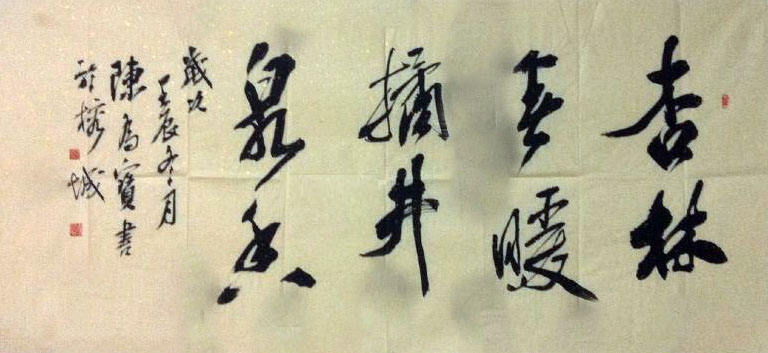 杏林
春暖
橘井
泉香
歲次
壬辰冬月
陳為寶書
於榕城